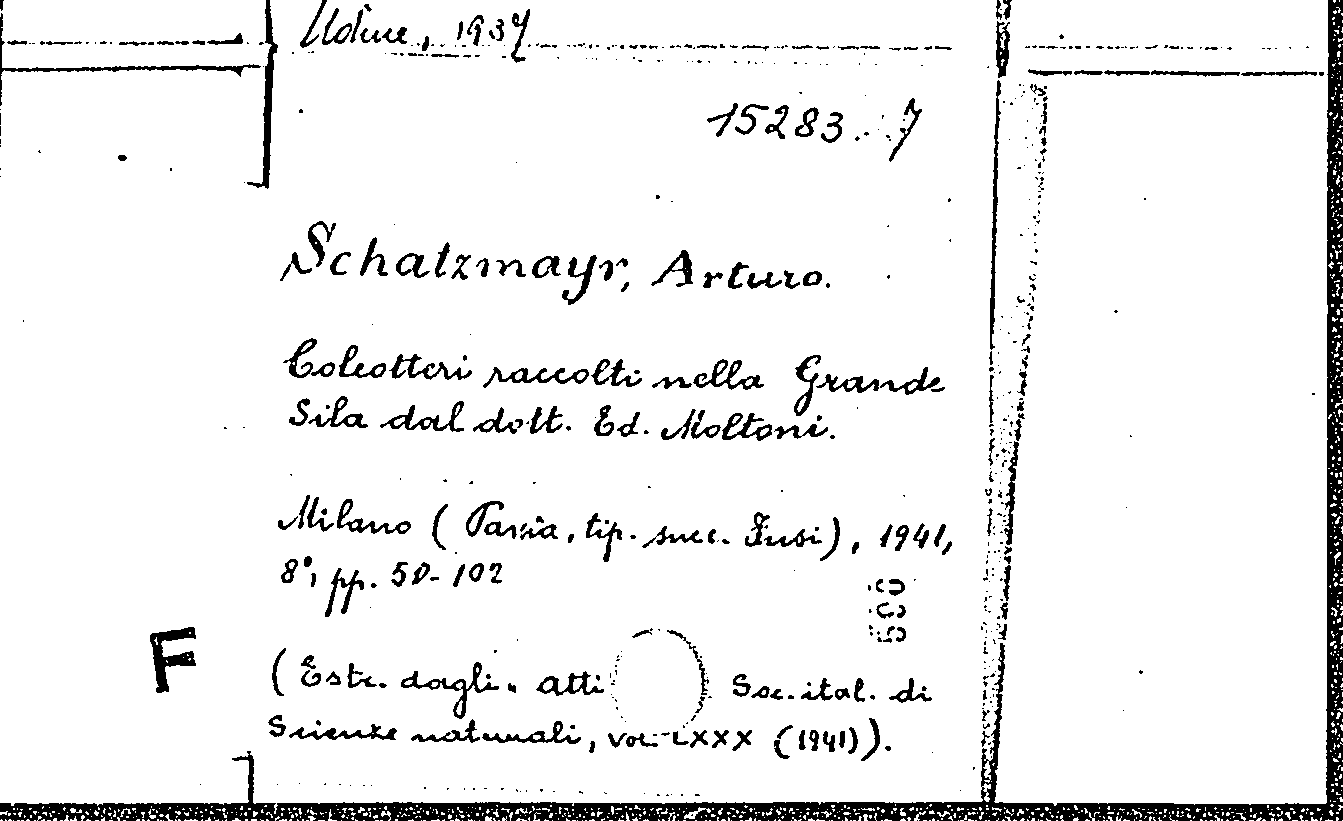 Udine, 1937
15283. 7
Schatzmayr, Arturo.
Coleotteri raccolti nella Grande
Sila dal dott. Ed. Moltoni.
Milano (Pavia, tip. succ. Fusi), 1941,
8°, pp. 50-102
600
F
(Estr. dagli. atti Soc. ital. di
Scienze naturali, vol. LXXX (1941)).